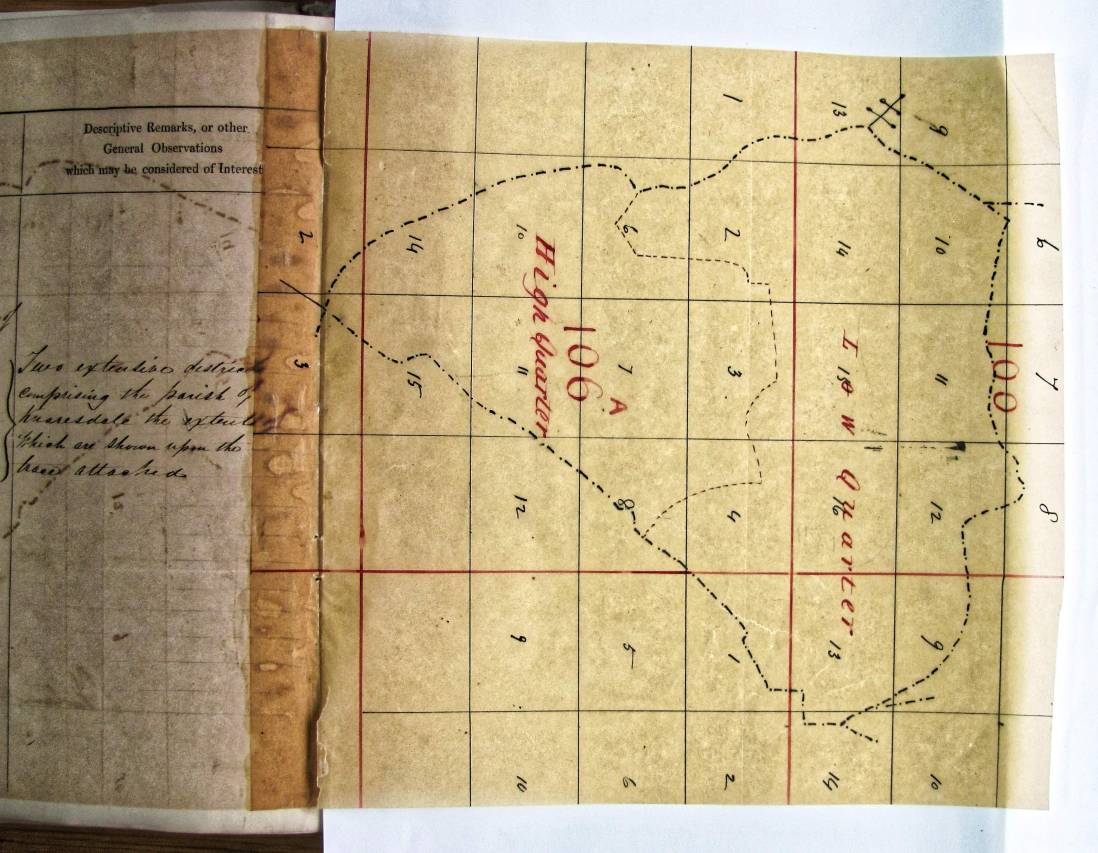 Descriptive Remarks, or other
General Observations
which may be considered of Interest
Two extensive districts
comprising the parish of
Knaresdale the extents of
which are shown upon the
traces attached
6 7 8
100
9 10 11 12 9 10
13 14 15 16 13 14
Low Quarter
1 2 3 4 1 2
6 7 8 5 6
A
106
High Quarter
10 11 12 9 10
14 15
2 3